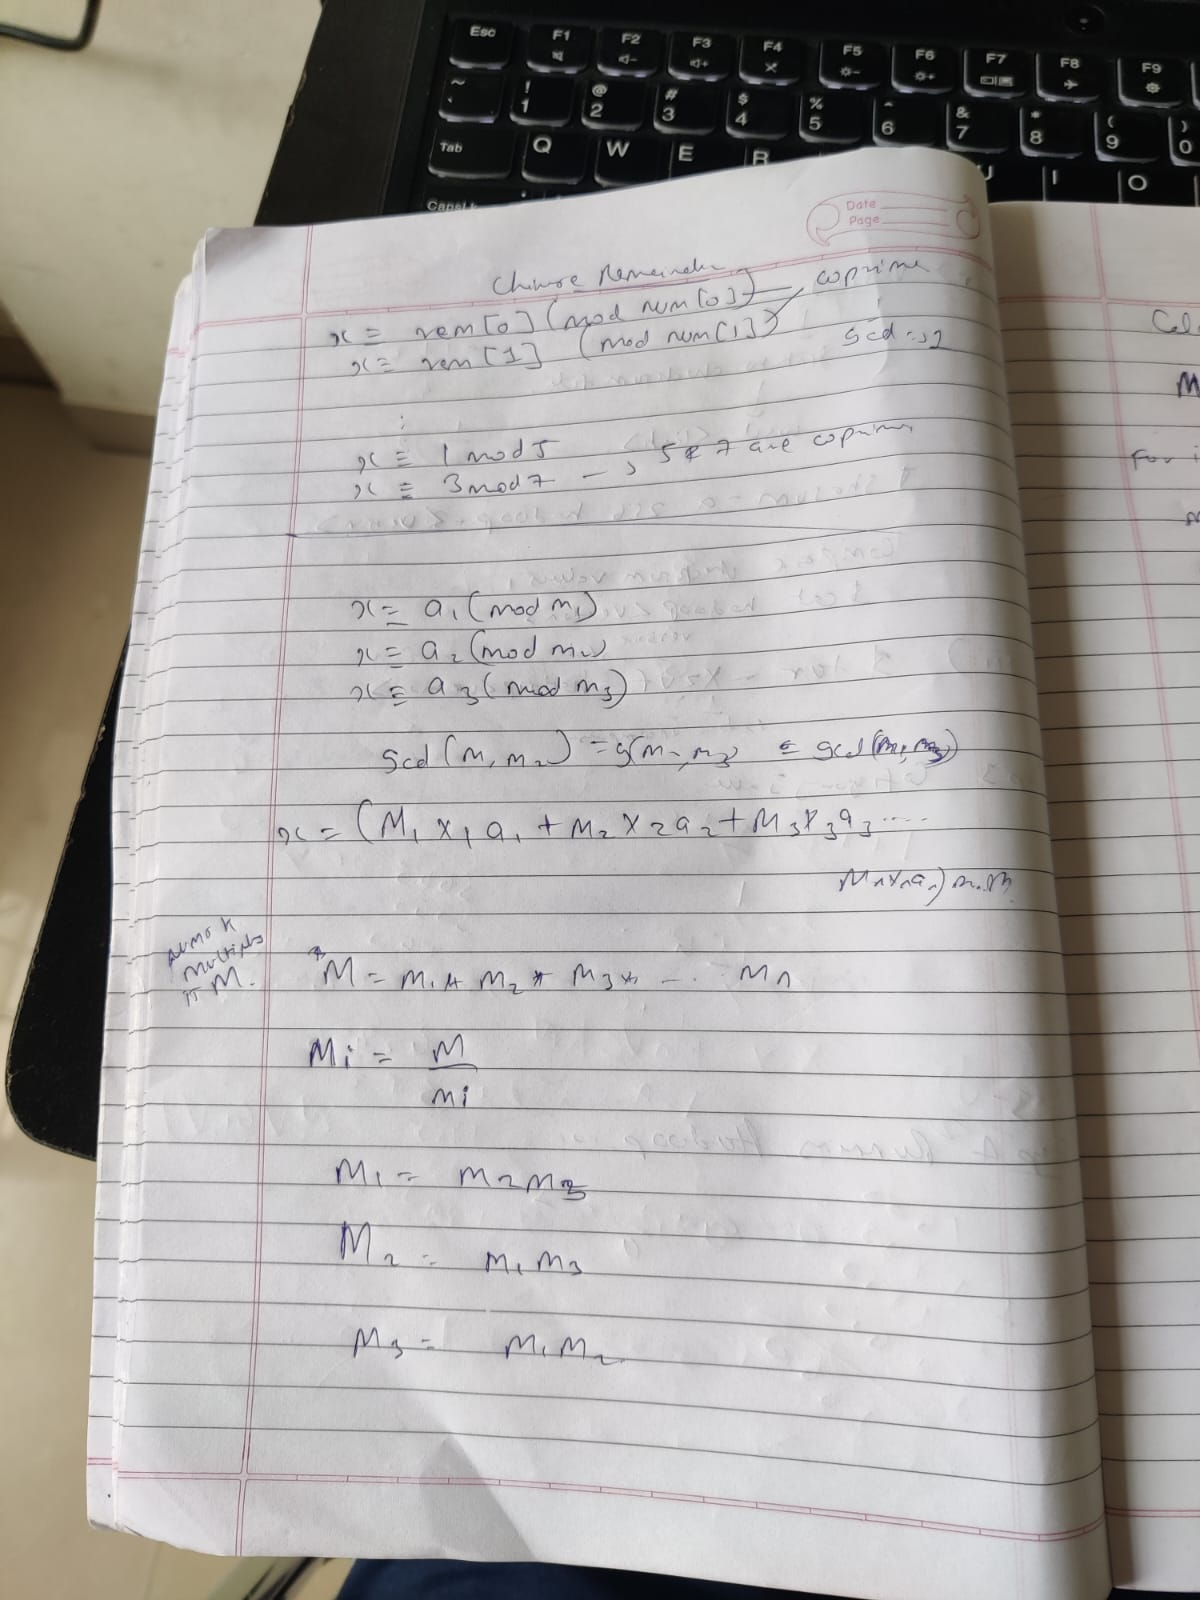 Esc F1 F2 F3 F4 F5 F6 F7 F8 F9
~ ` ! 1 @ 2 # 3 $ 4 % 5 ^ 6 & 7 * 8 ( 9 ) 0
Tab Q W E R U I O
Date
Page
Chinese Remainder
x ≡ rem[0] (mod num[0]) coprime
x ≡ rem[1] (mod num[1])
:
x ≡ 1 mod 5
x ≡ 3 mod 7 -> 5 & 7 are coprime
x ≡ a1 (mod m1)
x ≡ a2 (mod m2)
x ≡ a3 (mod m3)
gcd (m1 m2) = g(m2, m3) = gcd(m1, m3)
x = (M1 x1 a1 + M2 x2 a2 + M3 x3 a3 ....
Mn xn an) mod M
multiples
M.
M = m1 * m2 * m3 * ... mn
Mi = M
mi
M1 = m2m3
M2 = m1 m3
M3 = m1 m2
Cal
M
For i